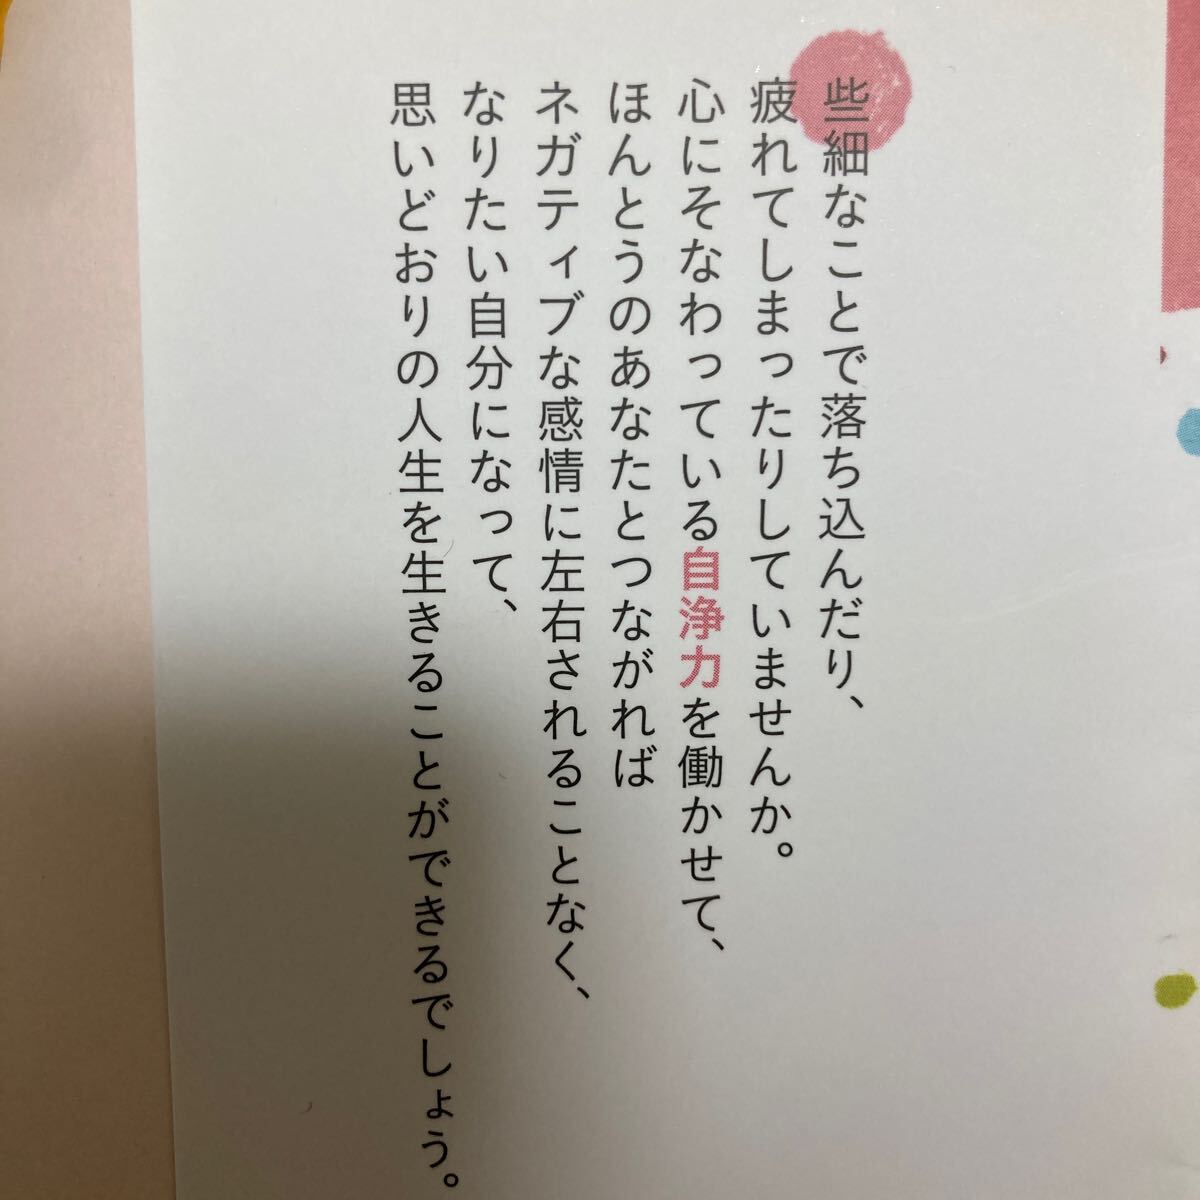 些細なことで落ち込んだり、
疲れてしまったりしていませんか。
心にそなわっている自浄力を働かせて、
ほんとうのあなたとつながれば
ネガティブな感情に左右されることなく、
なりたい自分になって、
思いどおりの人生を生きることができるでしょう。